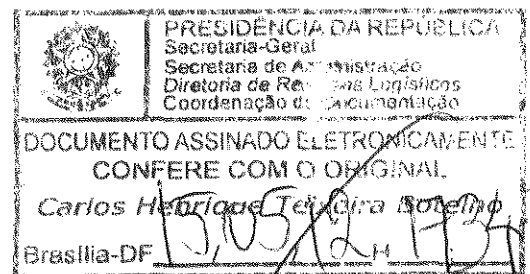 PRESIDÊNCIA DA REPÚBLICA
Secretaria-Geral
Secretaria de Administração
Diretoria de Logísticos
Coordenação de Documentação
DOCUMENTO ASSINADO ELETRONICAMENTE
CONFERE COM O ORIGINAL
Carlos Henrique Teixeira Botelho
Brasília-DF 15,05,12 H 1734